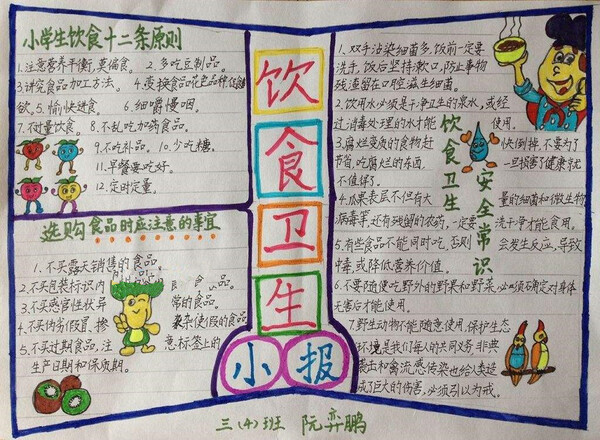 小学生饮食十二条原则
1.注意营养平衡,莫偏食。 2.多吃豆制品。
3.讲究食品加工方法。 4.变换食品花色品种促食
欲。5.愉快进食。 6.细嚼慢咽。
7.不过量饮食。 8.不乱吃加药食品。
9.不吃补品。 10.少吃糖。
11.早餐要吃好。
12.定时定量。
选购食品时应注意的事宜
1.不买露天销售的食品
2.不买包装标识内 食品。
3.不买感官性状异常的食品。
4.不买伪劣假冒、掺杂使假的食品
5.不买过期食品,注意标签上的
生产日期和保质期。
饮
食
卫
生
小报
饮食卫生
安全常识
1.双手沾染细菌多,饭前一定要
洗手,饭后坚持漱口,防止事物
残渣留在口腔滋生细菌。
2.饮用水必须是干净卫生的泉水,或经
过消毒处理的水才能使用。
3.腐烂变质的食物赶快倒掉,不要为了
节省,吃腐烂的东西,一旦损害了健康就
不值得了。
4.瓜果表层不但有大量的细菌和微生物
病毒等,还有残留的农药,一定要洗干净才能食用。
5.有些食品不能同时吃,否则会发生反应,导致
中毒或降低营养价值。
6.不要随便吃野外的野果和野菜,必须确定对身体
无害后才能使用。
7.野生动物不能随意使用,保护生态
环境是我们每人的共同义务,非典
袭击和禽流感传染也给人类造
成了巨大的伤害,必须引以为戒。
三(4)班 阮弈鹏